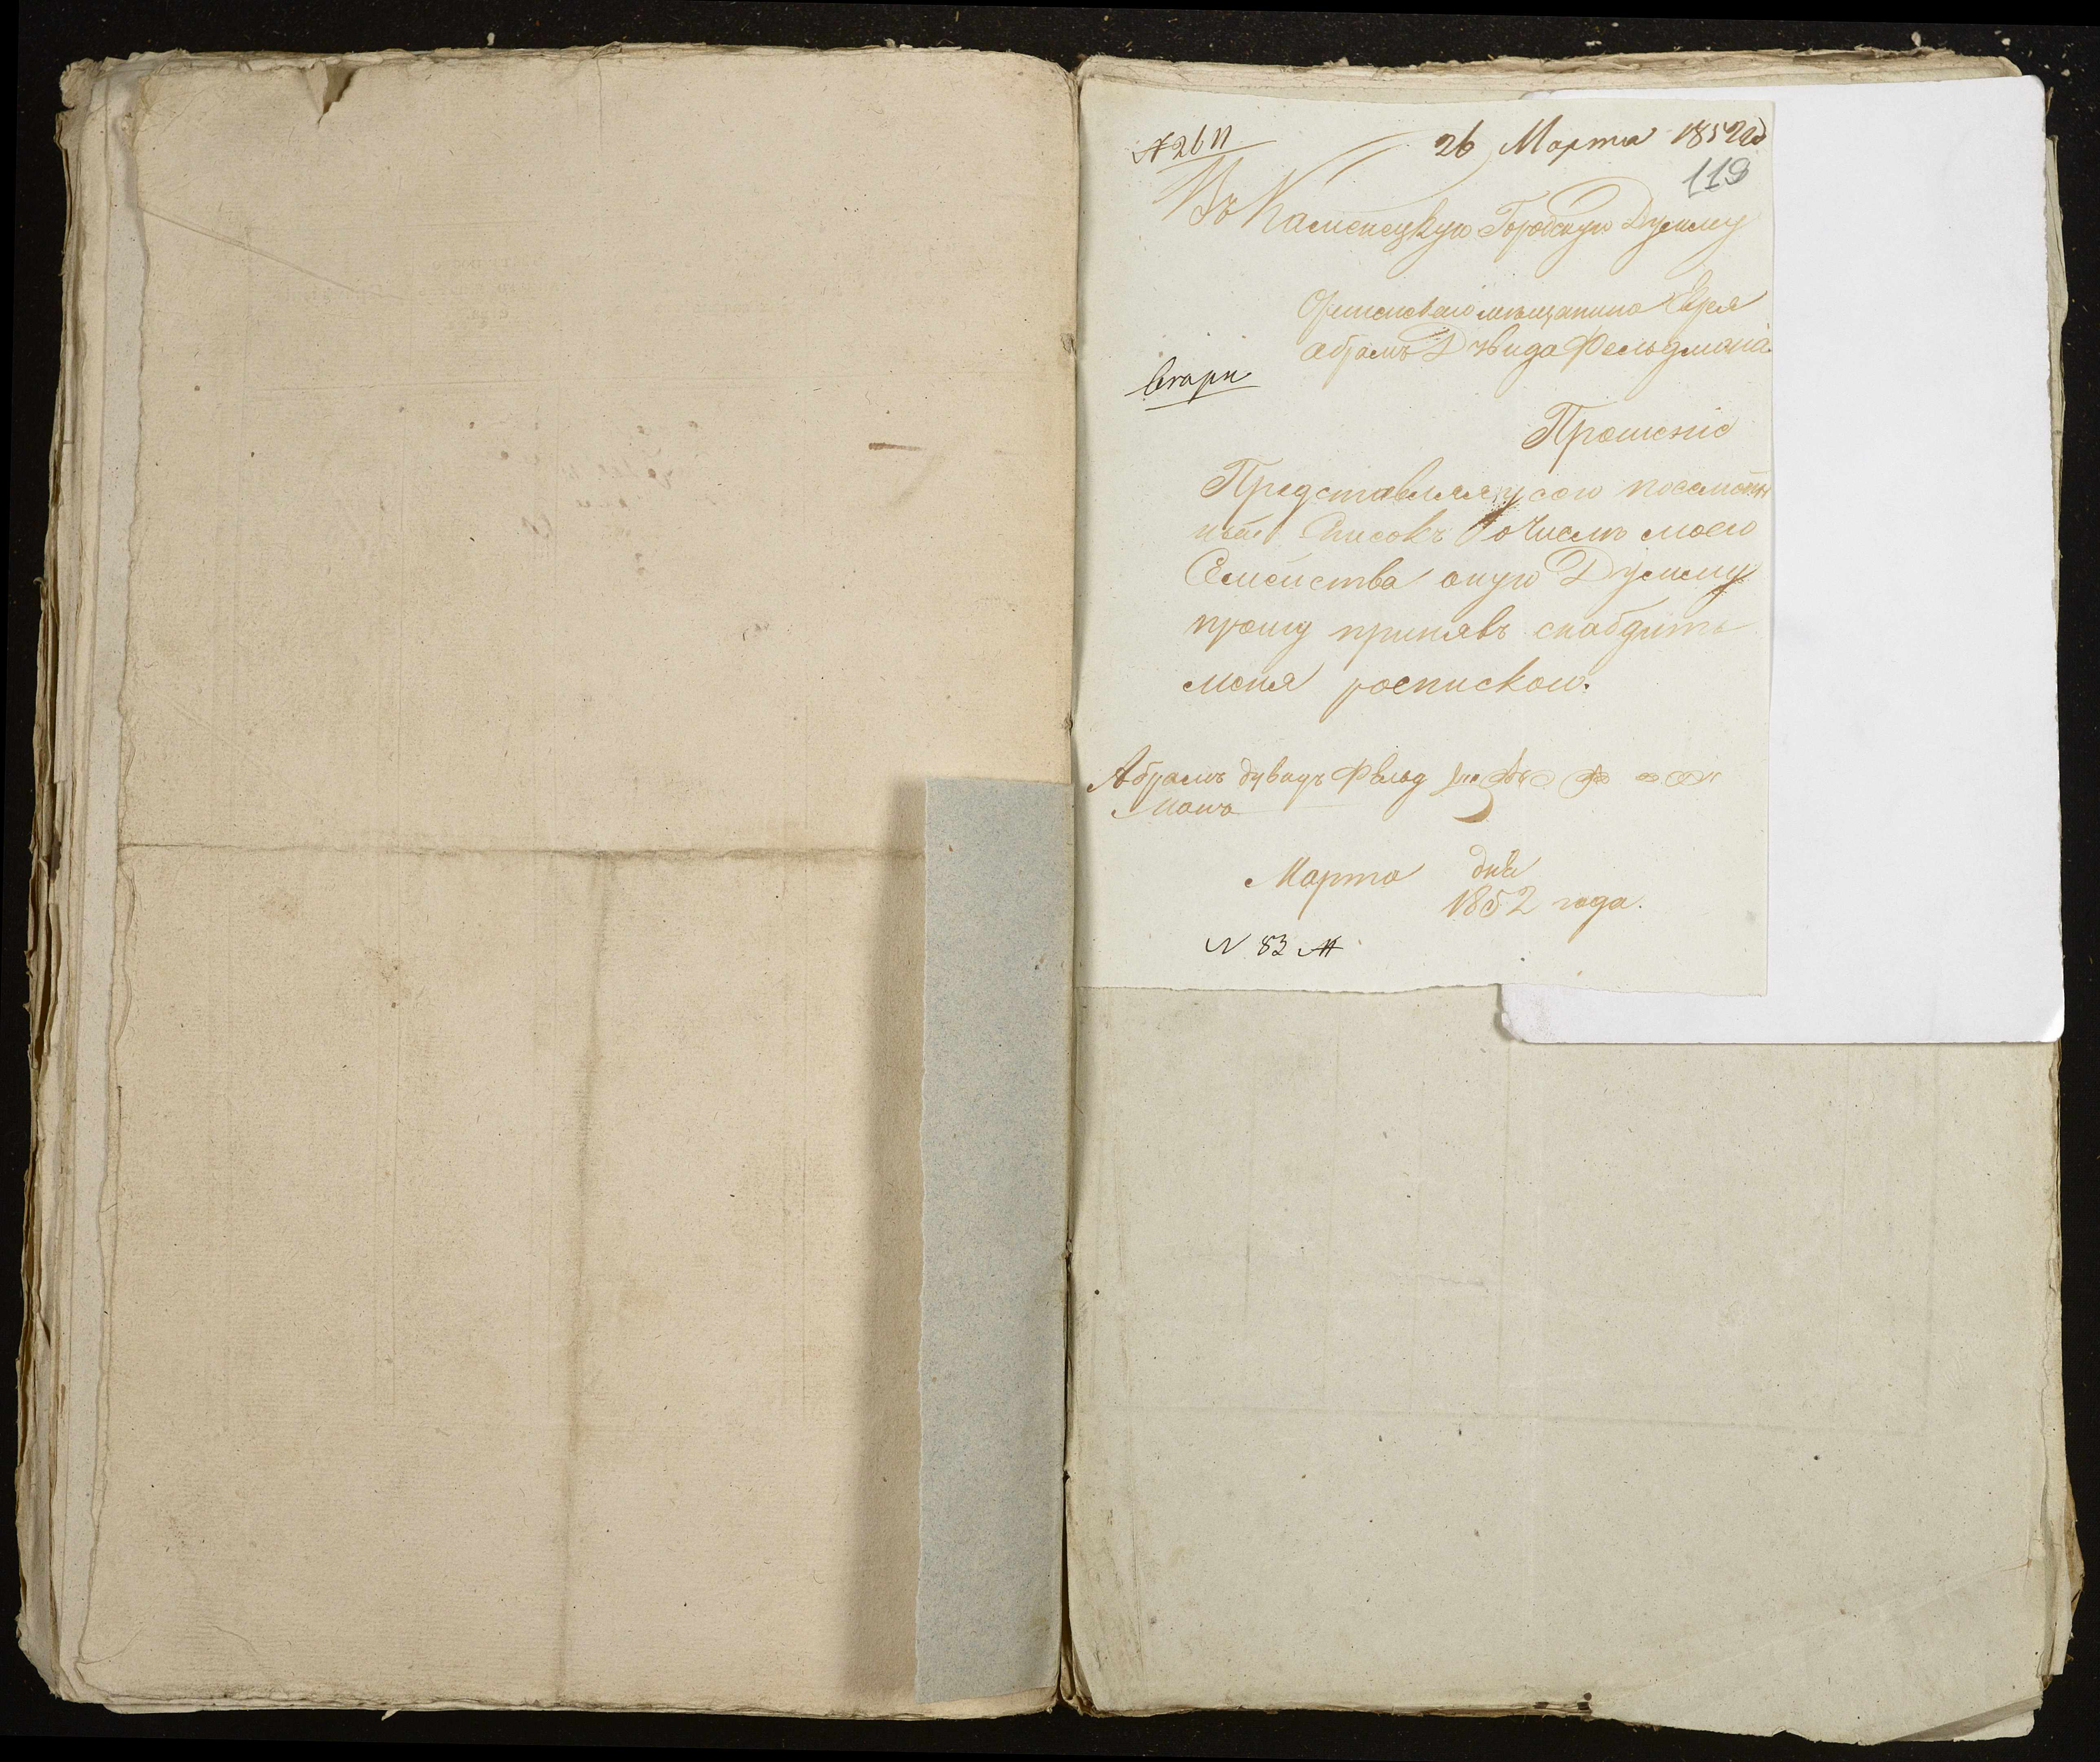 № 26 П
26 Марта 1852 го
119
Въ Каменецкую Городскую Думму
мещанина Еврея
Абрамъ Дувида Фельдмана
Прошение
Представляя у сего посемей
ный Список о числе моего
Семейства оную Думму
прошу принявъ снабдить
меня роспиской.
Абрамъ дувидъ Фельд
манъ
Марта дня
1852 года.
N 83